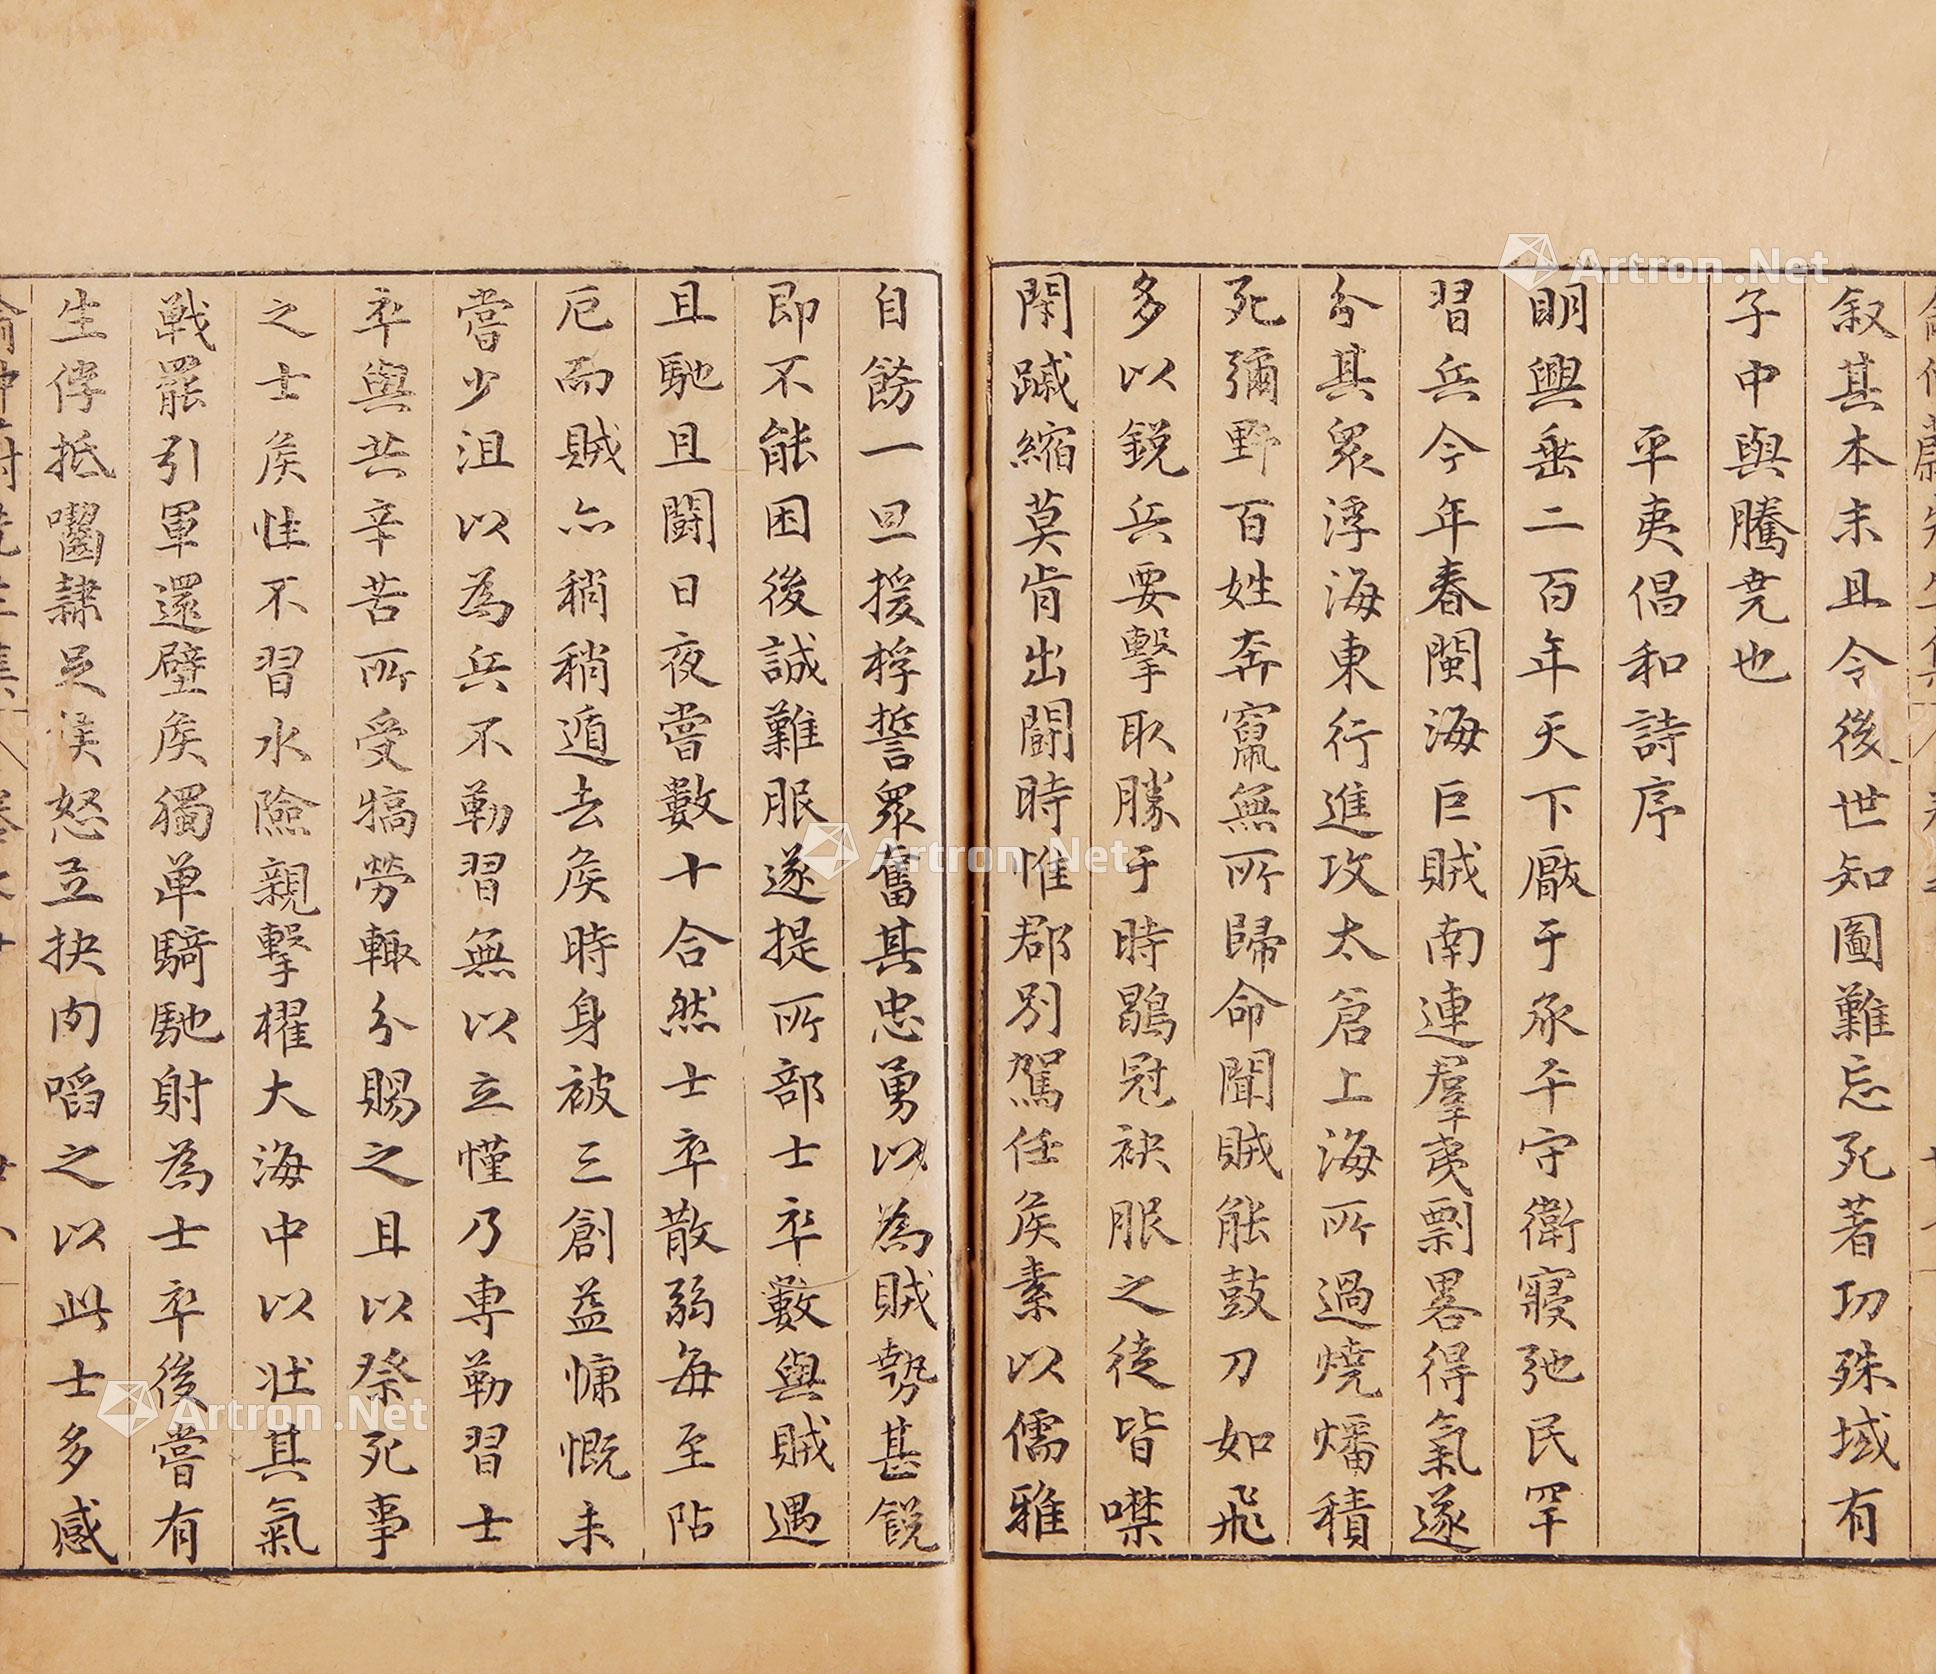 叙其本末且令後世知圖難忘死著功殊域有
子中與騰尭也
平夷倡和詩序
明興垂二百年天下厭于承平守衛寢弛民罕
習兵今年春閩海巨賊南連羣夷剽畧得氣遂
分其眾浮海東行進攻太倉上海所過燒燔積
死彌野百姓奔竄無所歸命聞賊能鼓刀如飛
多以銳兵要擊取勝于時鶡冠袂服之徒皆噤
閉蹴縮莫肯出鬬時惟郡別駕任矦素以儒雅
自飭一旦援桴誓眾奮其忠勇以為賊勢甚銳
即不能困後誠難服遂提所部士卒數與賊遇
且馳且鬬日夜嘗數十合然士卒散弱每至阽
厄而賊亦稍稍遁去矦時身被三創益慷慨未
嘗少沮以為兵不勒習無以立慬乃専勒習士
卒與共辛苦所受犒勞輙分賜之且以祭死事
之士矦性不習水險親擊櫂大海中以壯其氣
戰罷引軍還壁矦獨单騎馳射為士卒後嘗有
生俘抵囓隷足矦怒立抉肉㗖之以此士多感
Artron.Net
Artron.Net
Artron.Net